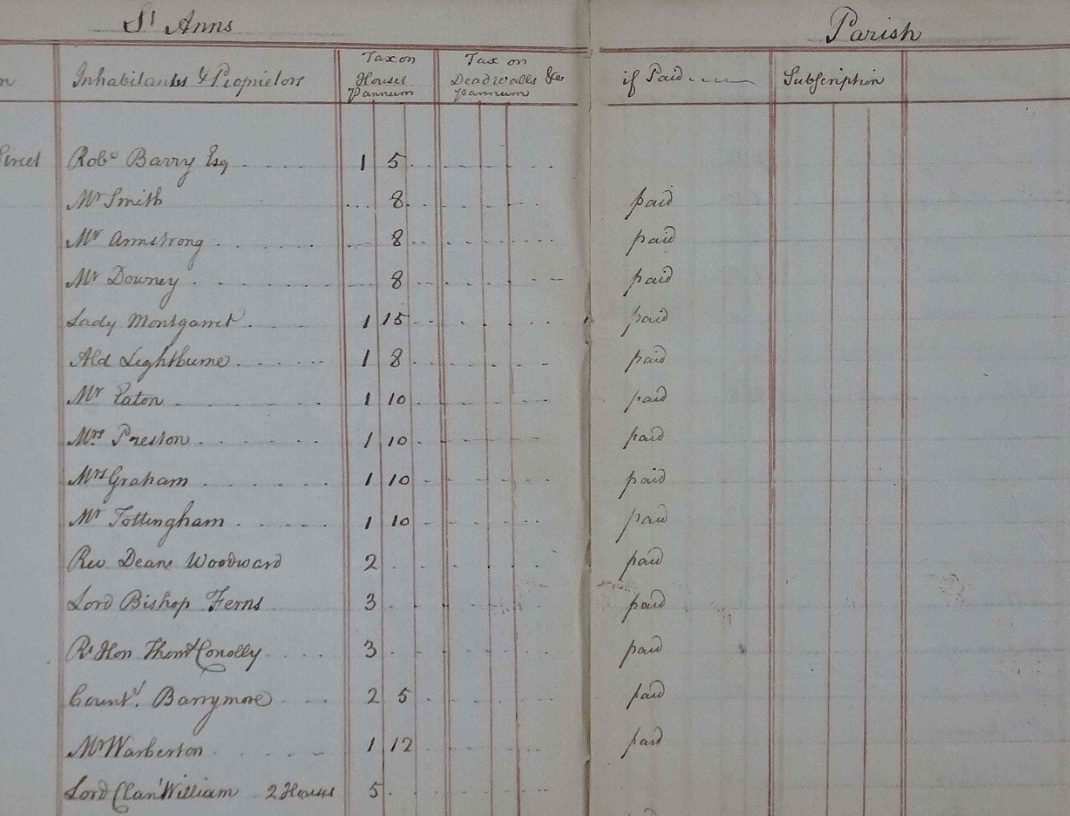 St Anns Parish
Inhabitants & Proprietors Tax on Houses pannum Tax on Dead walls &c pannum if Paid Subscription
Street Robt Barry Esq 1 5
Mr Smith 8 paid
Mr Armstrong 8 paid
Mr Downey 8 paid
Lady Montgarret 1 15 paid
Ald Lightburne 1 8 paid
Mr Eaton 1 10 paid
Mrs Preston 1 10 paid
Mrs Graham 1 10 paid
Mr Tottingham 1 10 paid
Rev Deane Woodward 2 paid
Lord Bishop Ferns 3 paid
Rt Hon Thoms Conolly 3 paid
Count. Barrymore 2 5 paid
Mr Warberton 1 12 paid
Lord Clan William 2 Houses 5